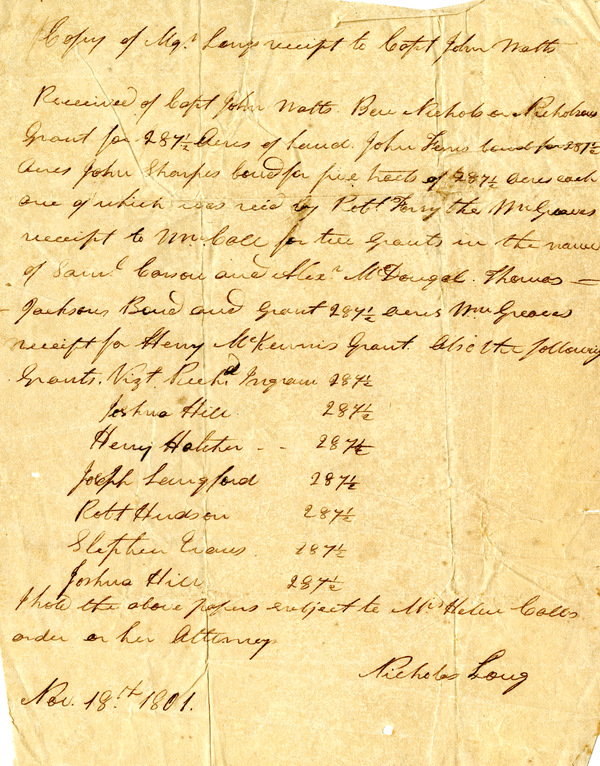 Copy of Mgr. Longs receipt to Capt John Watts
Received of Capt John Watts. Ben Nicholson Nicholsons
Grant for 287½ Acres of Land. John Fenns bond for 287½
Acres John Sharpes bond for five tracts of 287½ acres each
one of which was recd by Robt Forsythe Wm Greaves
receipt to Wm Call for two Grants in the name
of Saml Carson and Alexr McDougal. Thomas
Jacksons Bond and Grant 287½ Acres Wm Greaves
receipt for Henry McKennis Grant. Also the following
Grants. Vizt. Richd Ingram 287½
Joshua Hill 287½
Henry Hatcher - - 287½
Joseph Langford 287½
Robt Hudson 287½
Stephen Evans. 287½
Joshua Hill 287½
I hold the above papers subject to Mrs Helen Calls
order or her Attorney
Nicholas Long
Nov. 18th 1801.